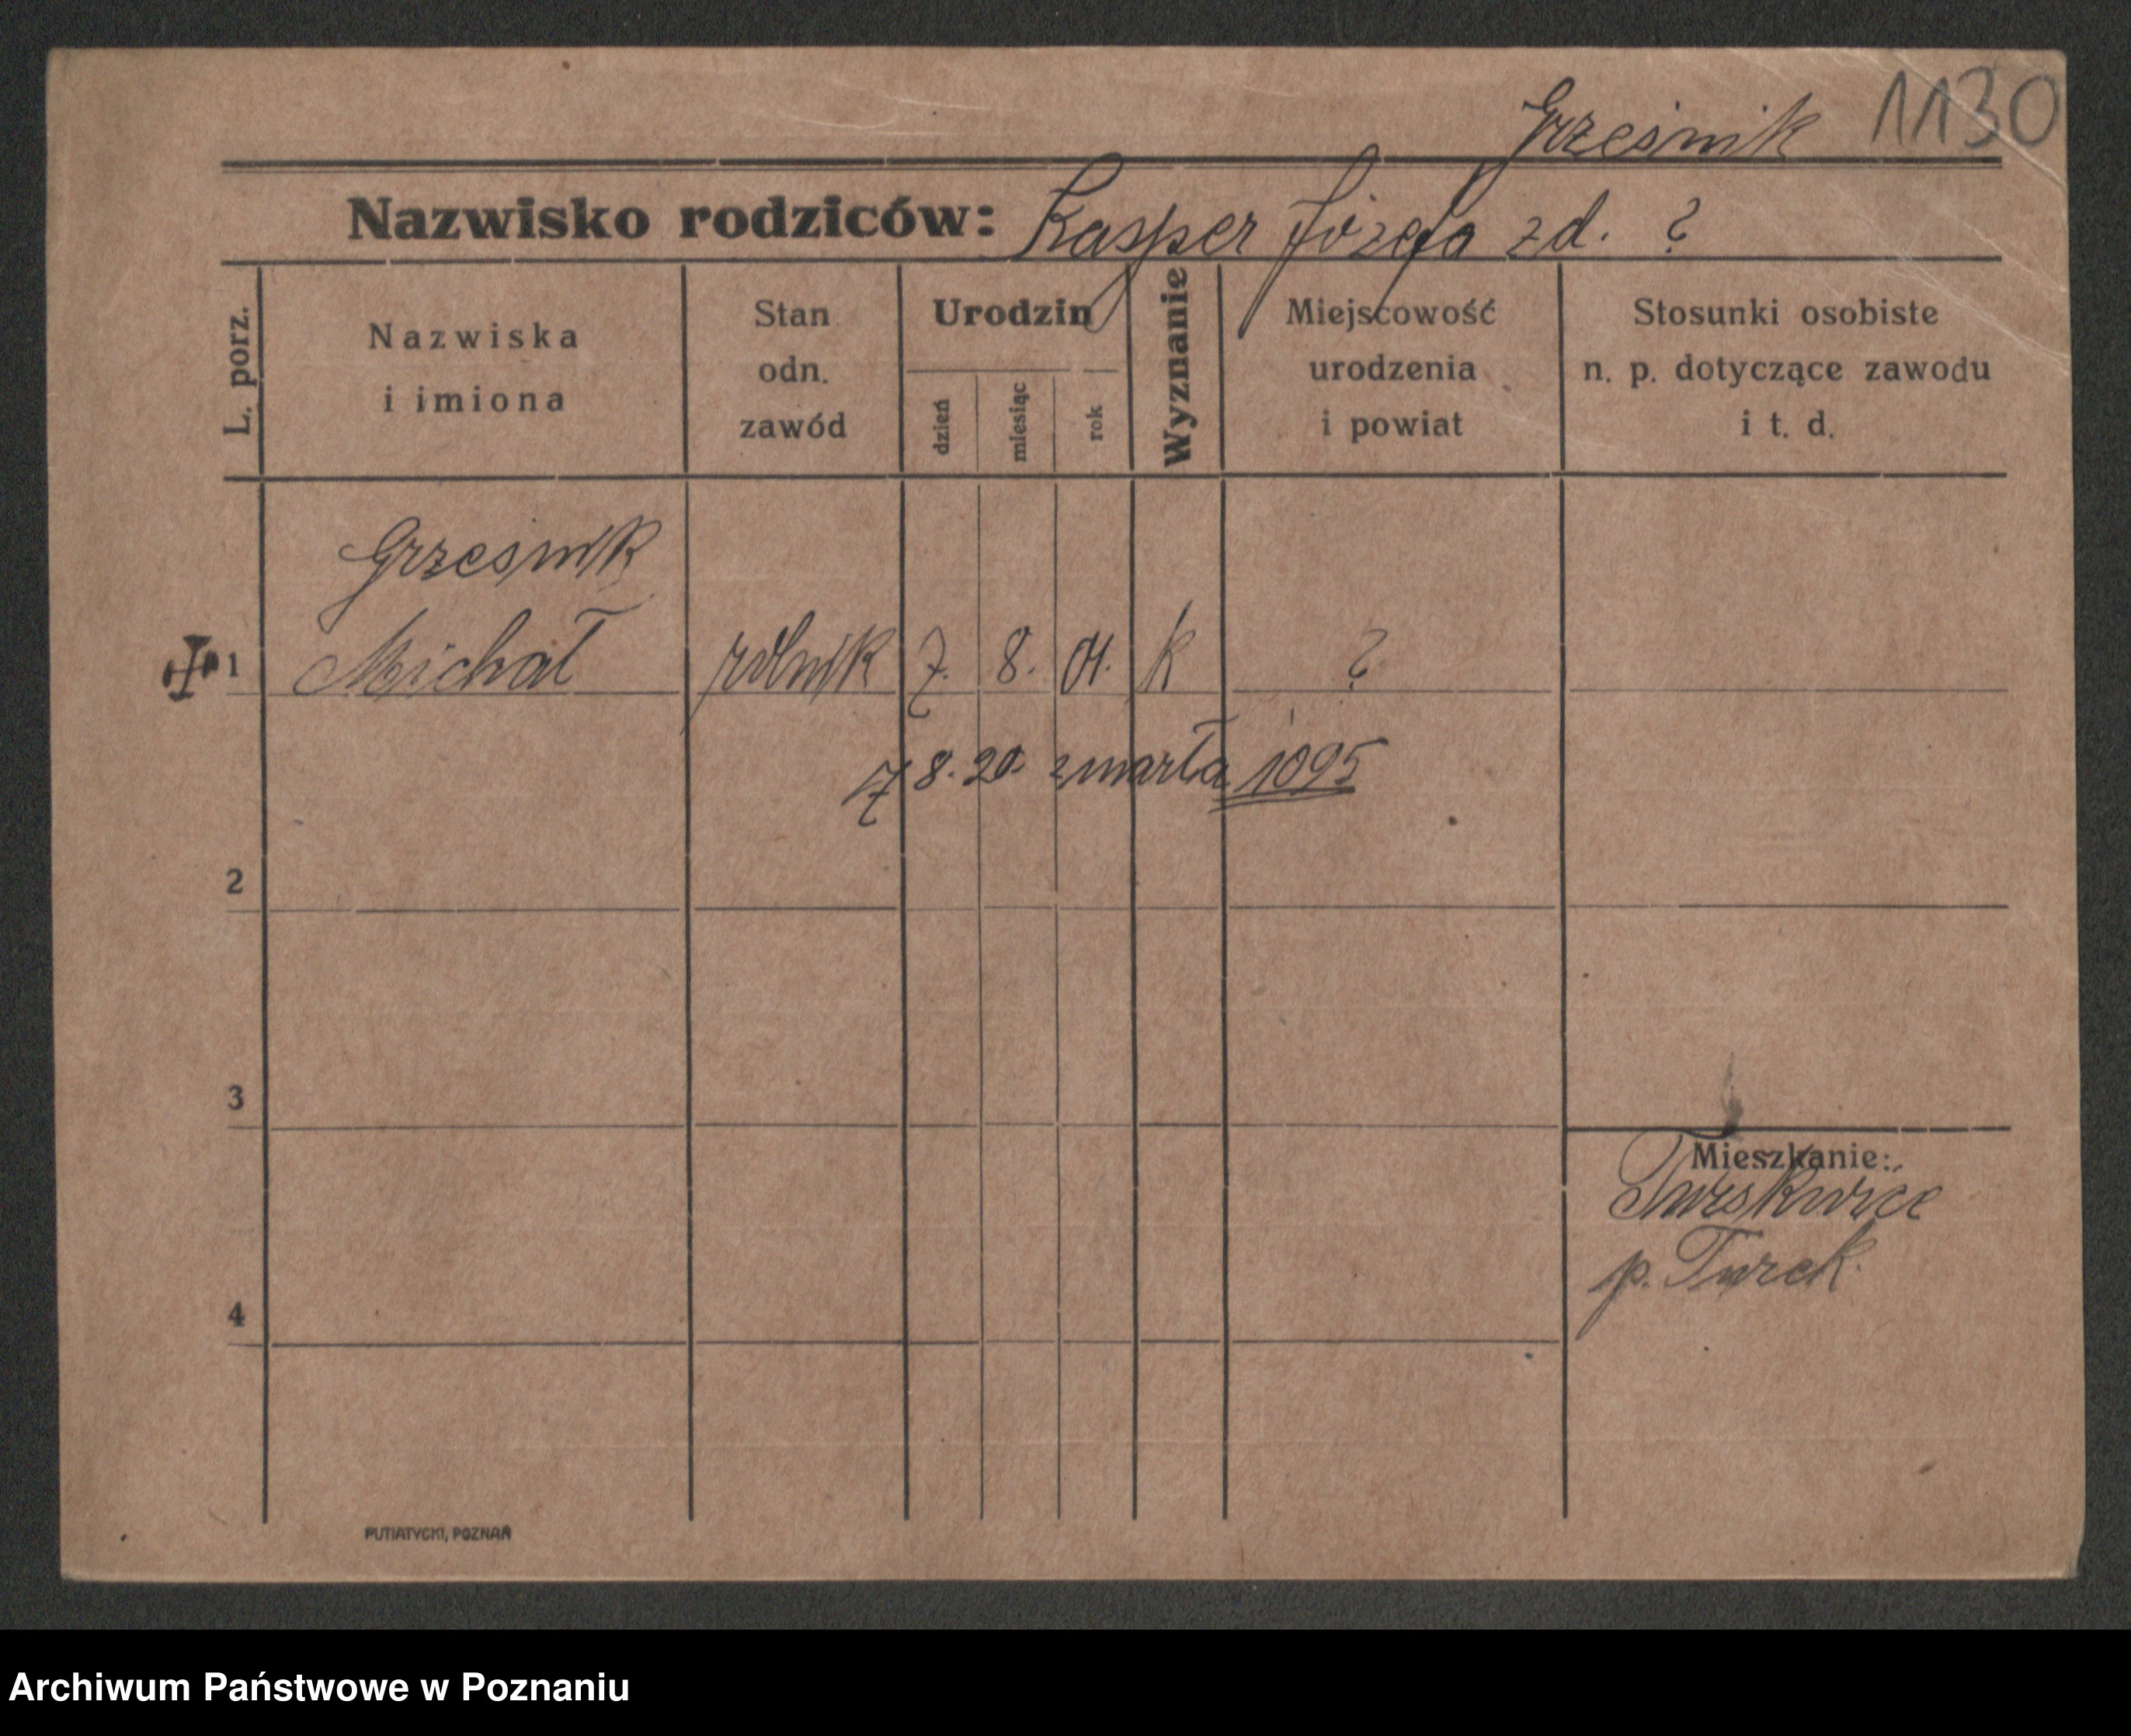 Grześnik 1130
Nazwisko rodziców: Kasper Józefa zd. ?
L. porz.
Nazwiska
i imiona
Stan
odn.
zawód
Urodzin
dzień
miesiąc
rok
Wyznanie
Miejscowość
urodzenia
i powiat
Stosunki osobiste
n. p. dotyczące zawodu
i t. d.
Grześnik
1 Michał rolnik 7. 8. 01. k ?
7 8. 20 zmarła 1095
2
3
4
Mieszkanie:
p. Turek.
PUTIATYCKI, POZNAŃ
Archiwum Państwowe w Poznaniu